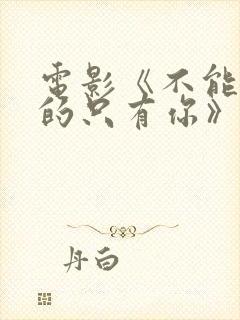 電影《不能
的只有你》
丹白